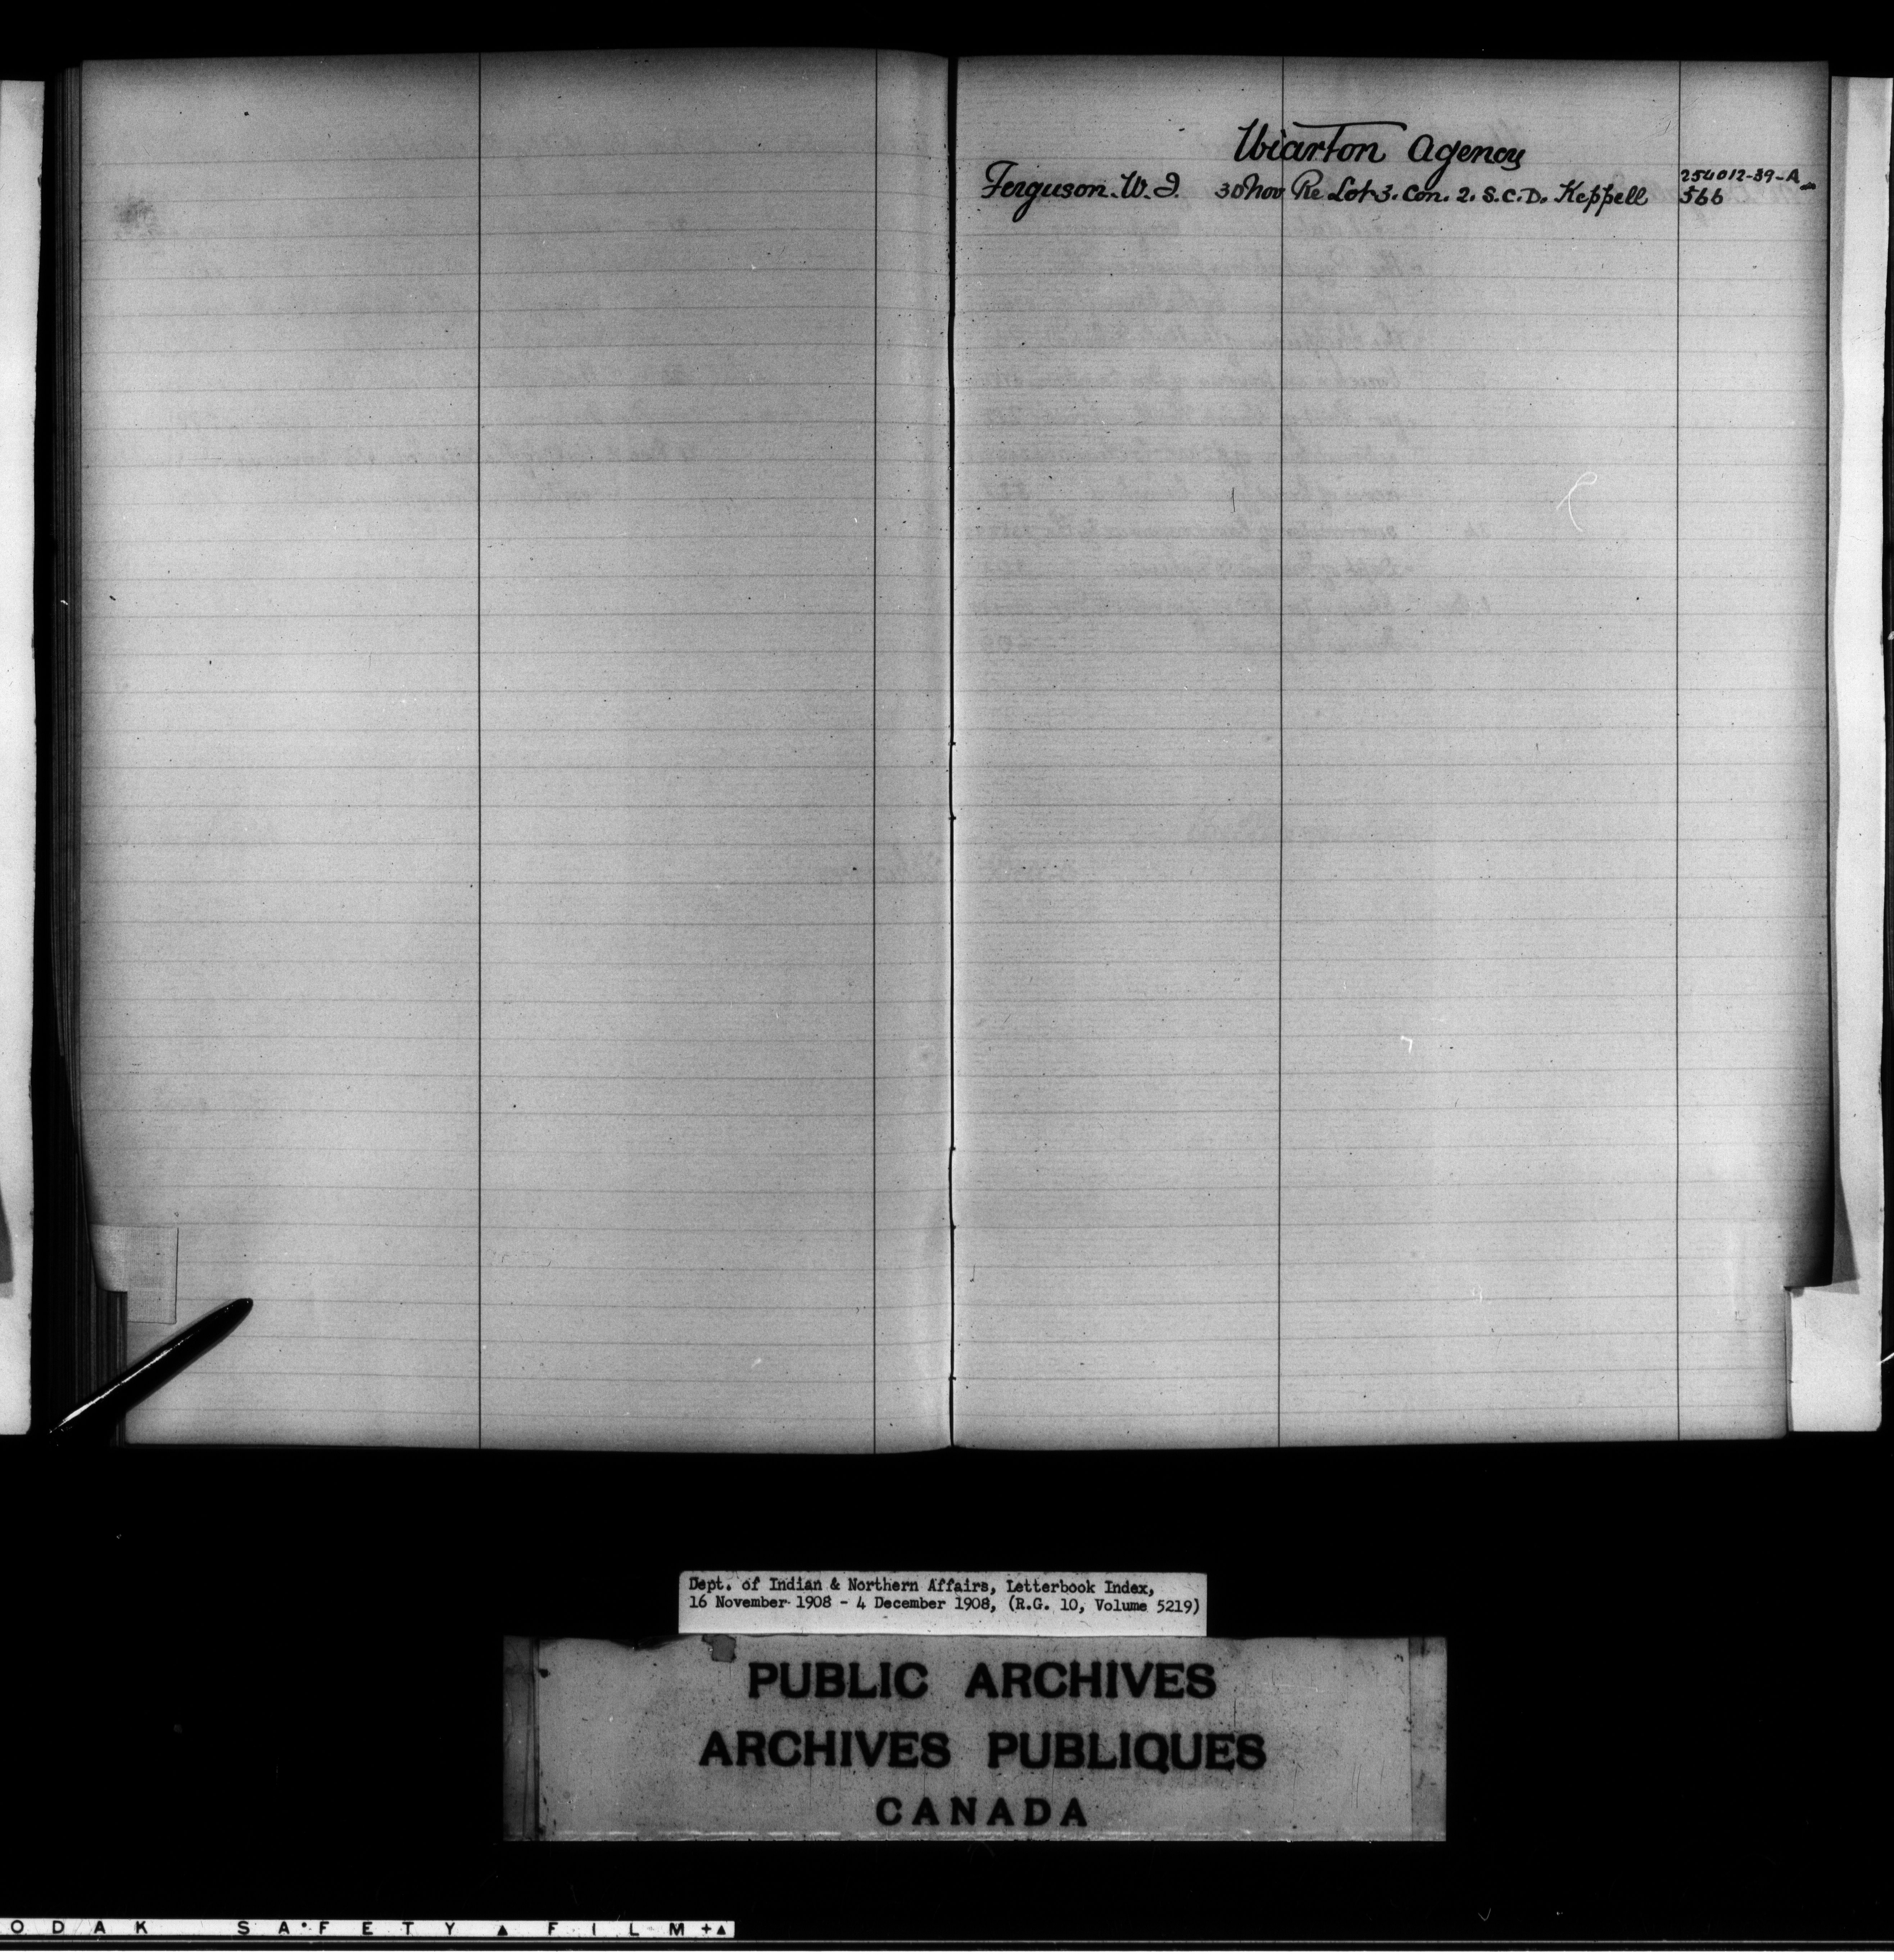 Wiarton Agency
254012-39-A
Ferguson. W. I. 30 Nov Re Lot 3. Con. 2. S.C.D. Keppell 566
Dept. of Indian & Northern Affairs, Letterbook Index,
16 November 1908 - 4 December 1908, (R.G. 10, Volume 5219)
PUBLIC ARCHIVES
ARCHIVES PUBLIQUES
CANADA
ODAK SA•FETY ▲ FILM +▲